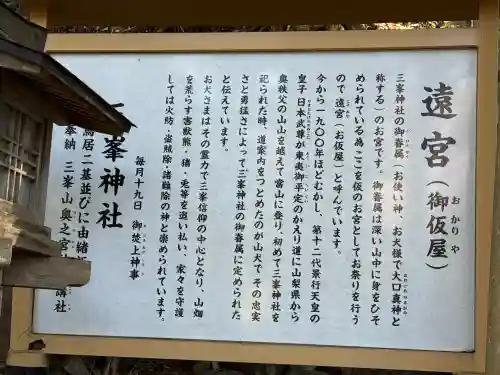 遠宮（御仮屋）
おかりや
三峯神社の御眷属（お使い神、お犬様で大口真神と
称する）のお宮です。御眷属は深い山中に身をひそ
められている為ここを仮のお宮としてお祭りを行う
ので遠宮（お仮屋）と呼んでいます。
今から一九〇〇年ほどむかし、第十二代景行天皇の
皇子日本武尊が東夷御平定のかえり道に山梨県から
奥秩父の山山を越えて當山に登り、初めて三峯神社を
祀られた時、道案内をつとめたのが山犬で その忠実
さと勇猛さによって三峯神社の御眷属に定められた
と伝えています。
お犬さまはその霊力で三峯信仰の中心となり、山畑
を荒らす害獣熊・猪・兎等を追い払い、家々を守護
しては火防・盗賊除・諸難除の神と崇められています。
毎月十九日 御焚上神事
峯神社
鳥居二基並びに由緒
奉納 三峯山奥之宮
講社